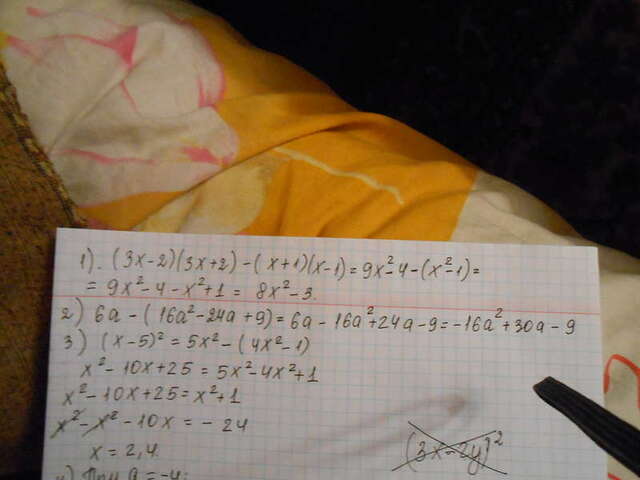 1). (3x-2)(3x+2)-(x+1)(x-1)=9x²-4-(x²-1)=
= 9x²-4-x²+1 = 8x²-3.
2) 6a-(16a²-24a+9)=6a-16a²+24a-9=-16a²+30a-9
3) (x-5)²=5x²-(4x²-1)
x²-10x+25=5x²-4x²+1
x²-10x+25=x²+1
x²-x²-10x=-24
x=2,4.
(3x-2y)²
4) При a=-4: